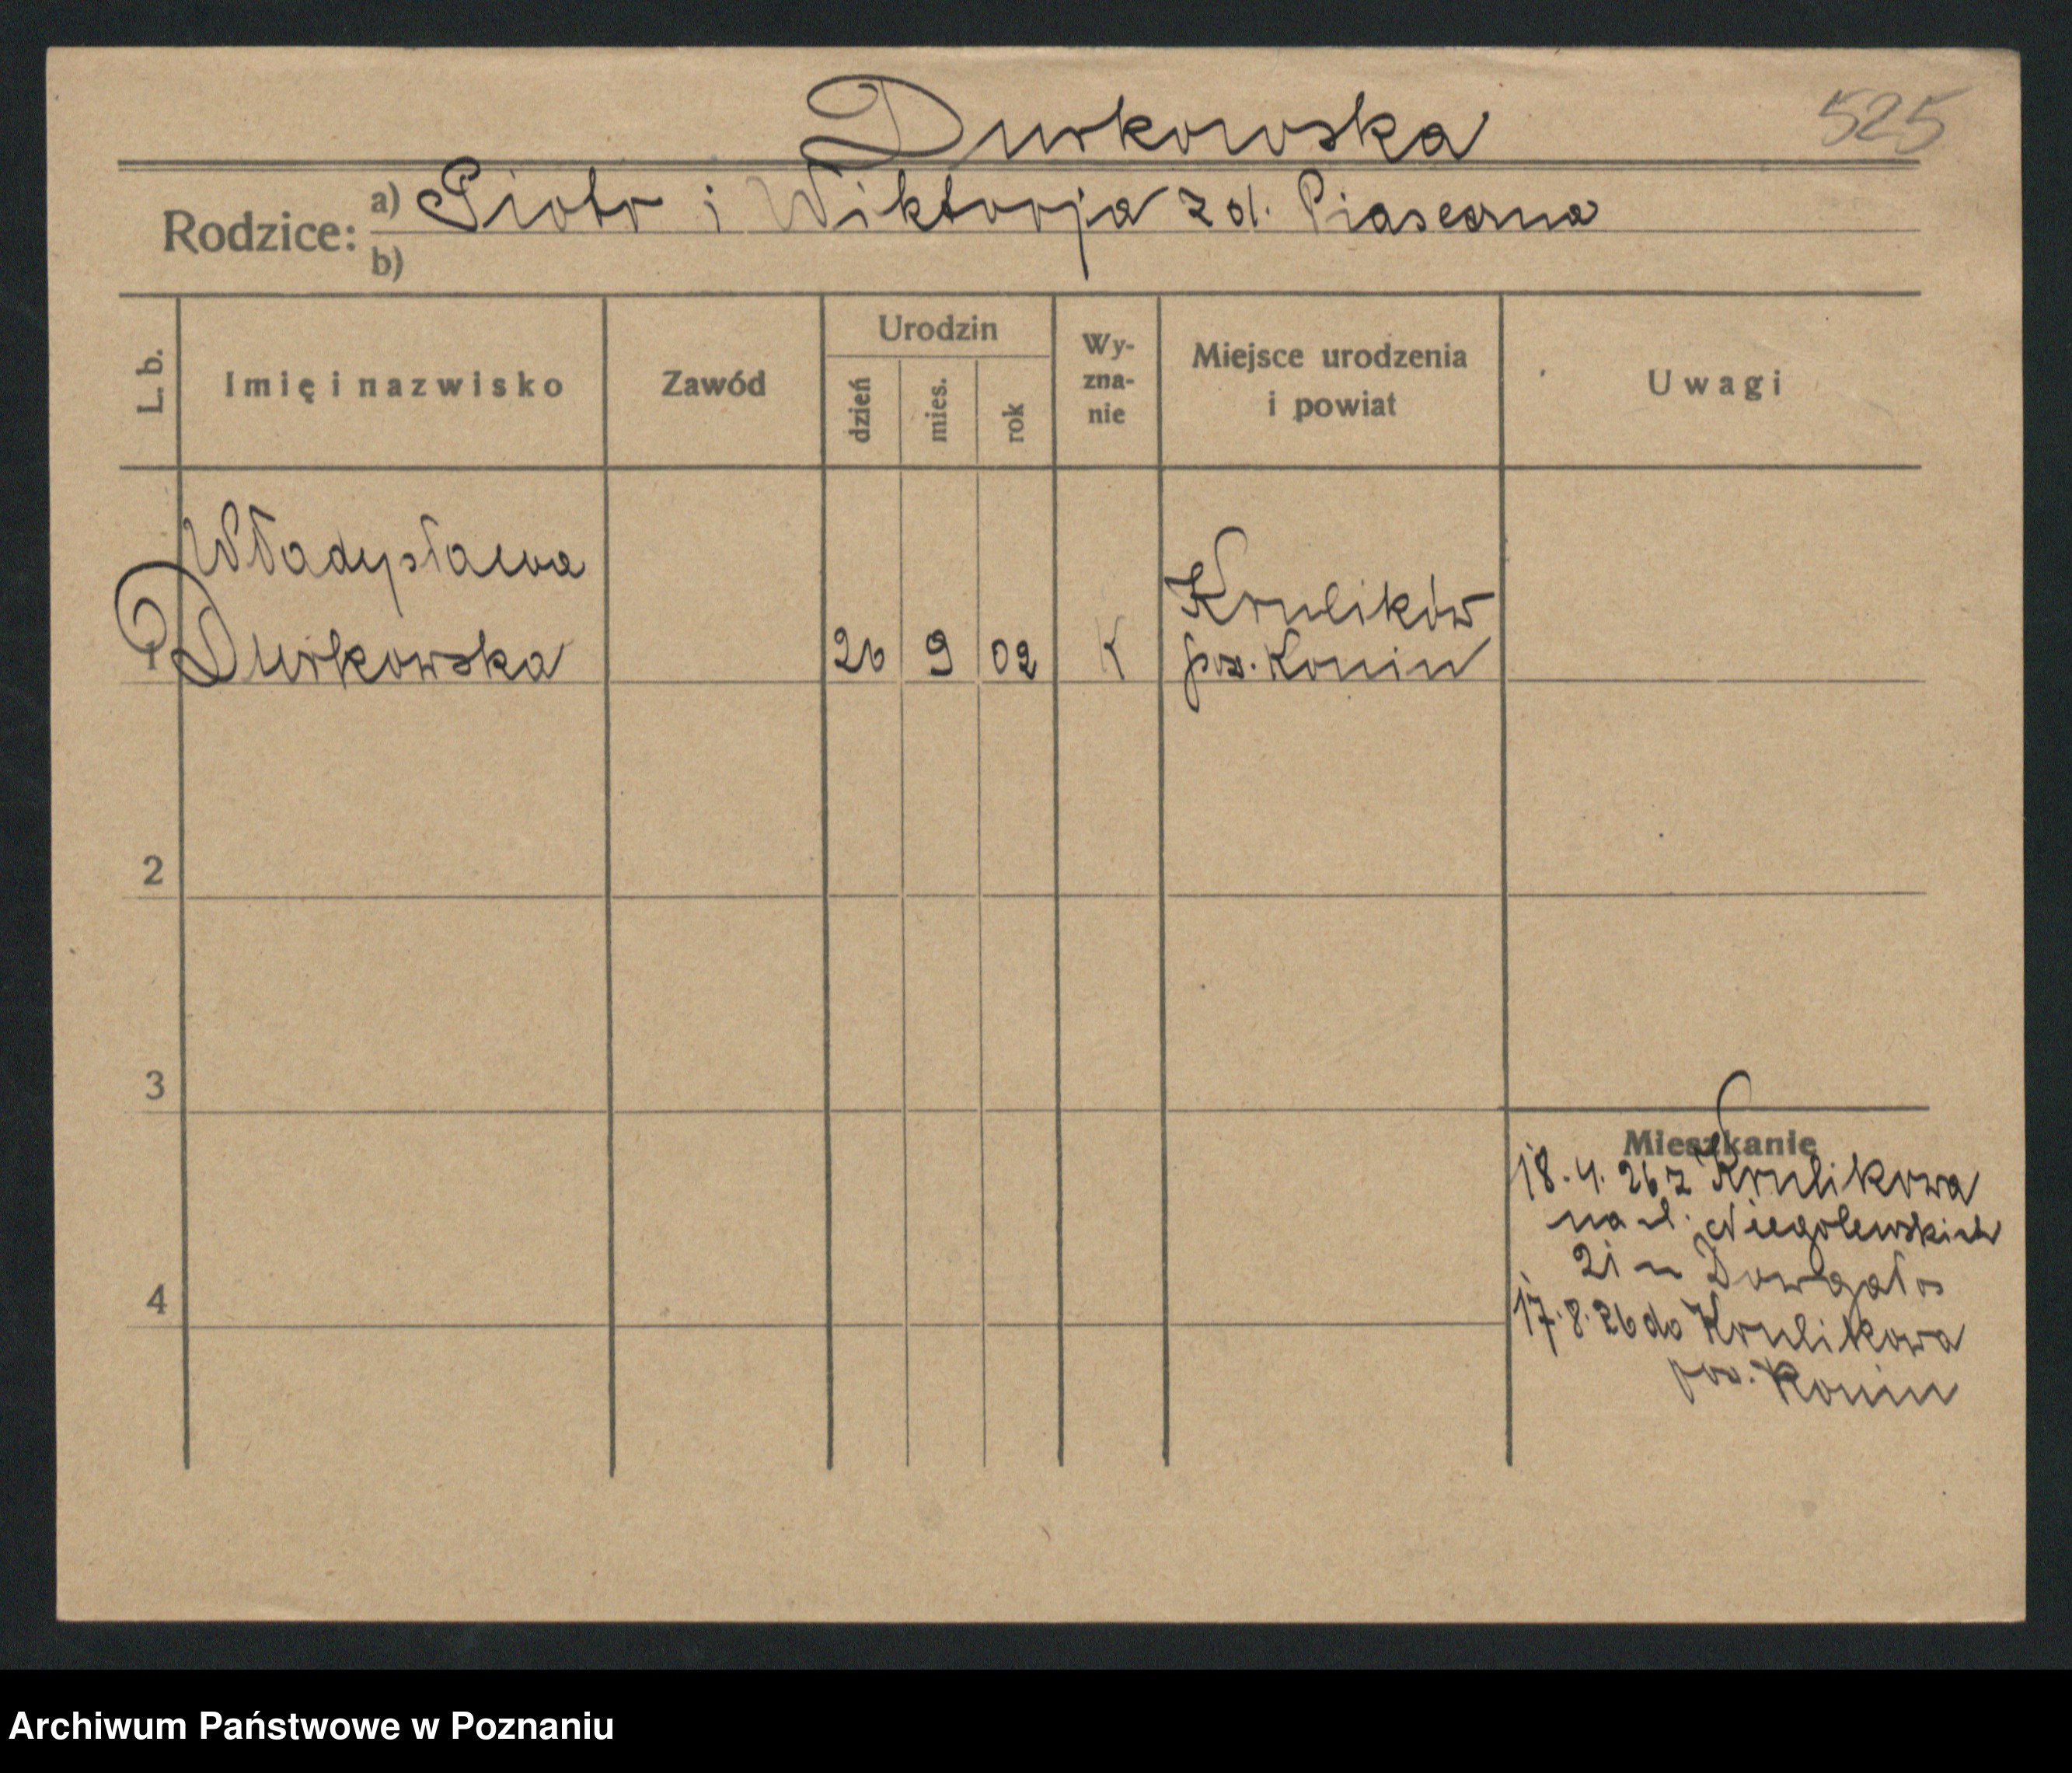 Durkowska
525
Rodzice: a) Piotr i Wiktorja z d. Piaseczna
b)
L. b.
Imię i nazwisko
Zawód
Urodzin
dzień
mies.
rok
Wy-
zna-
nie
Miejsce urodzenia
i powiat
Uwagi
Władysława
1 Durkowska 26 9 02 K
Krulików
pow. Konin
2
3
4
Mieszkanie
18.4.26 z Krulikowa
na ul. Niegolewskich
21 u
17.8.26 do Krulikowa
pow. Konin
Archiwum Państwowe w Poznaniu